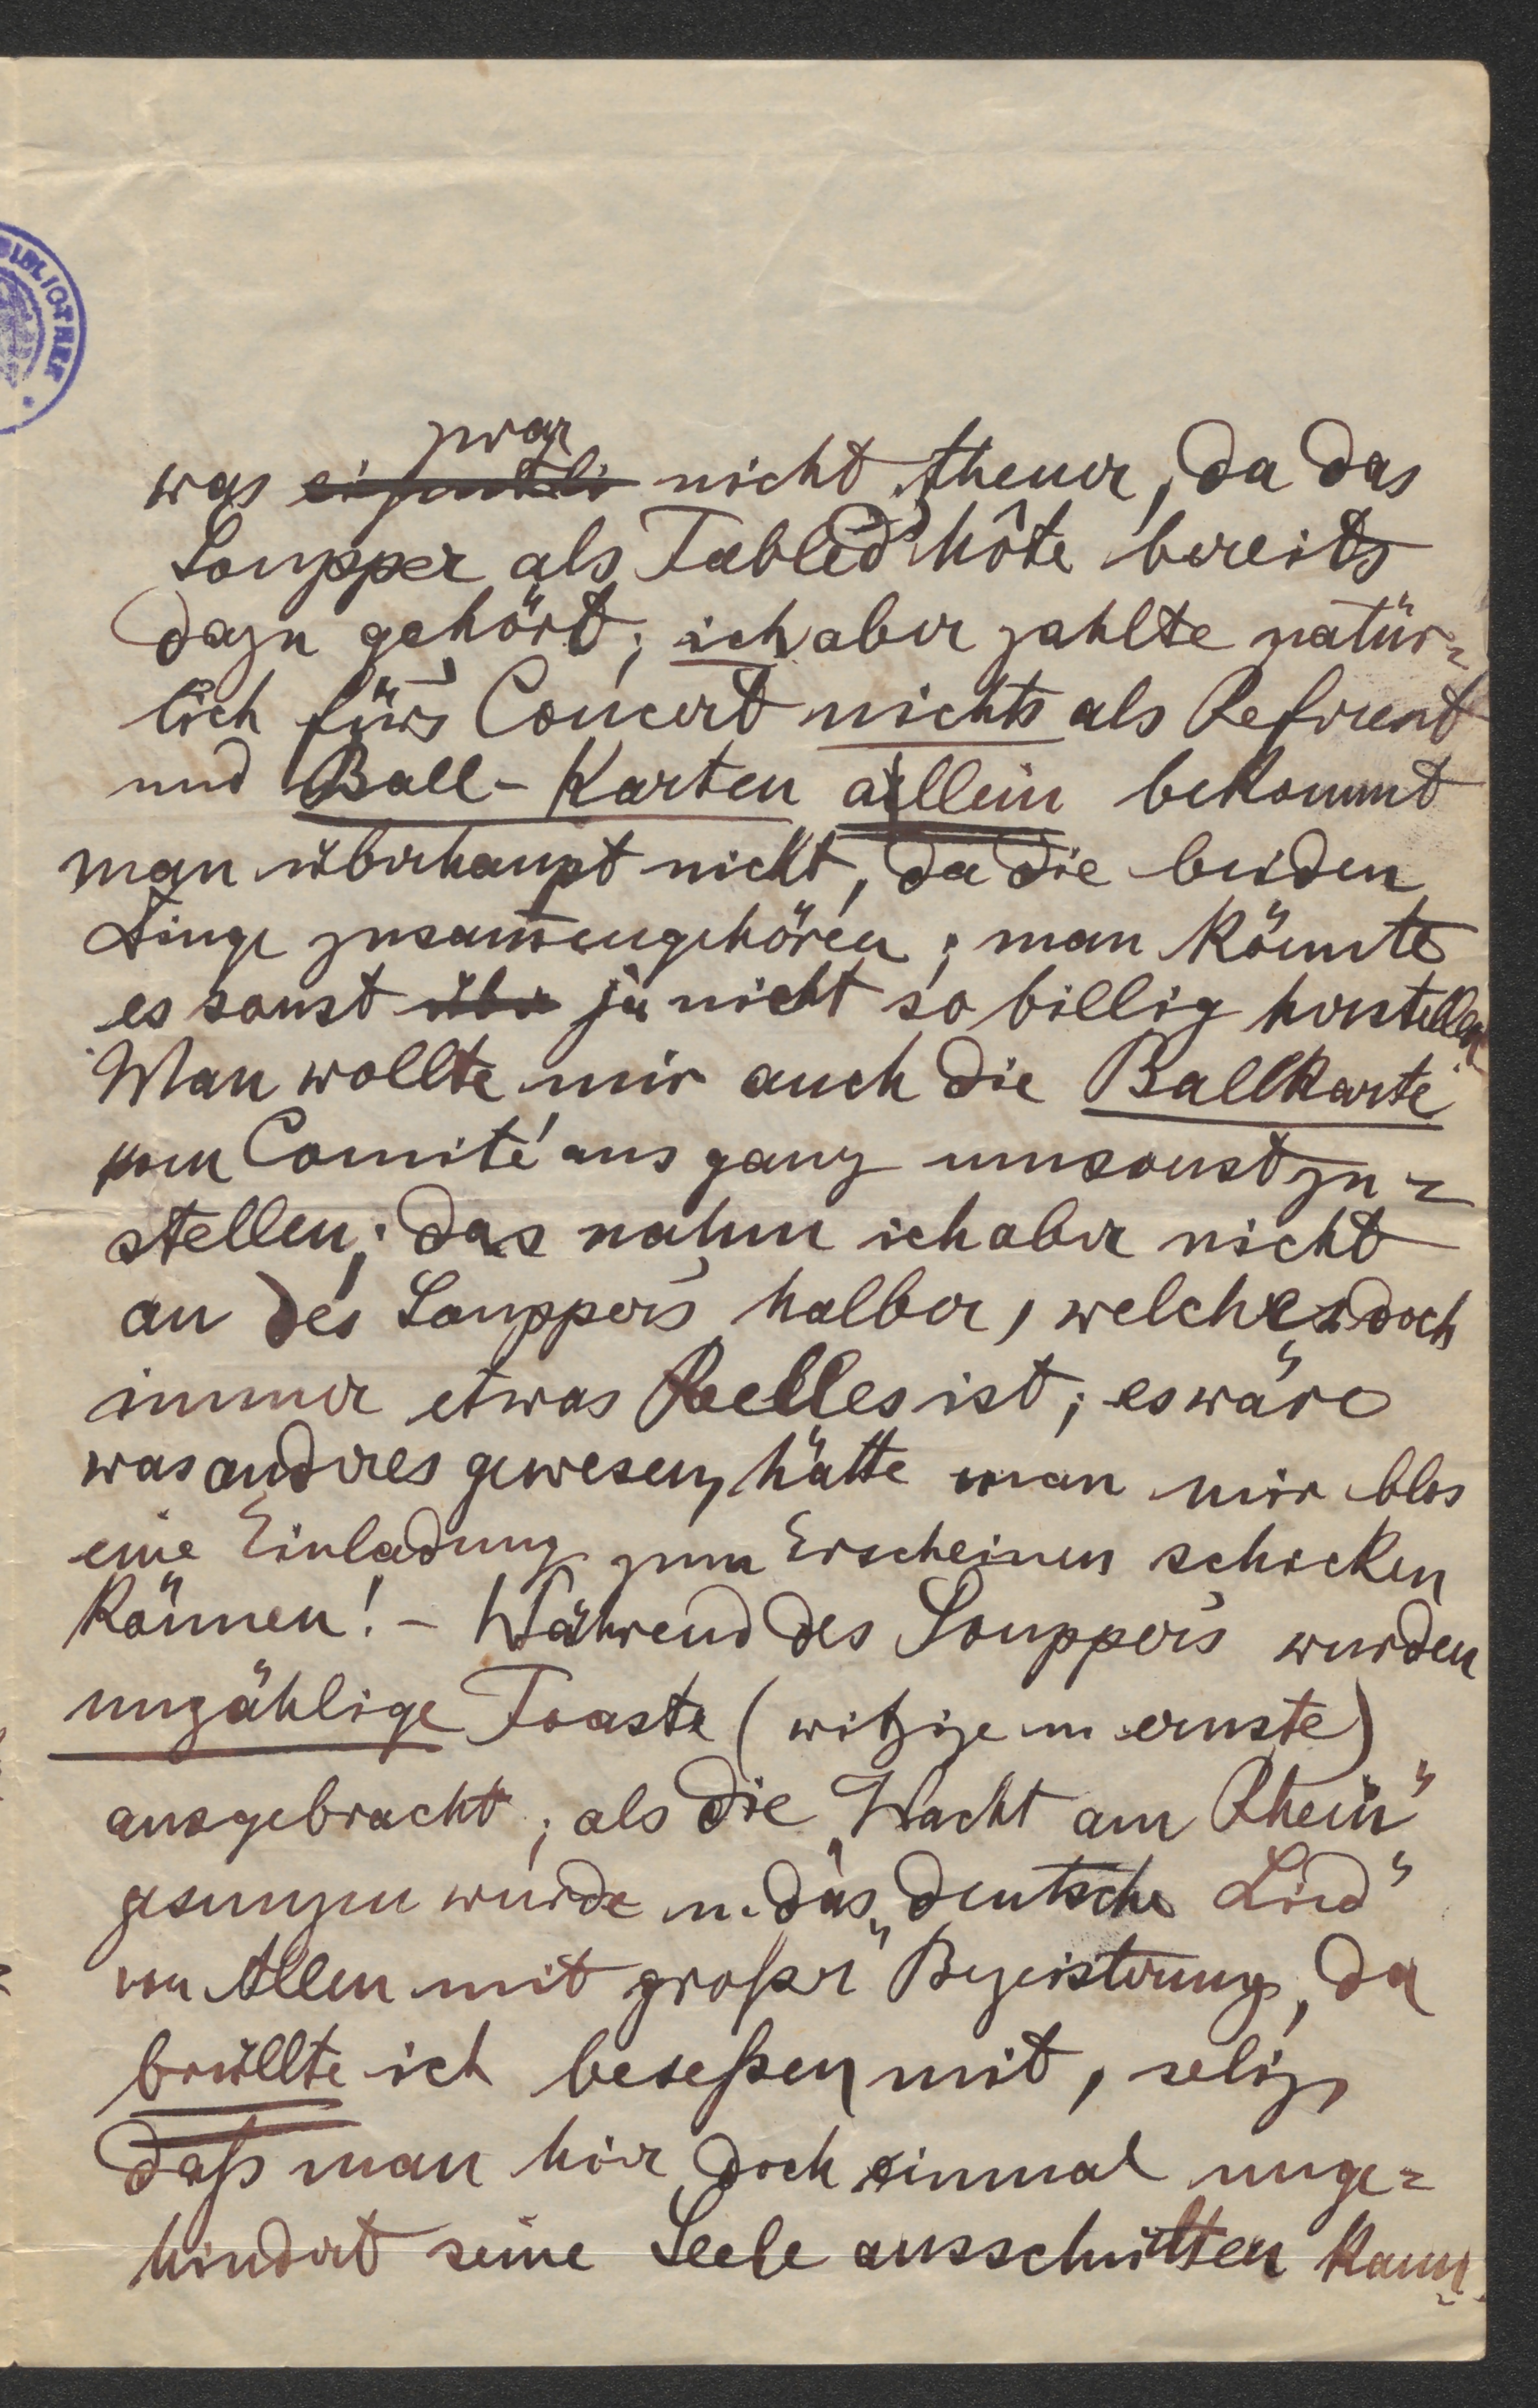 BIBLIOTHEK *
zwar
was eigentli nicht theuer, da das
Soupper als Tabled'hôte bereits
dazu gehört; ich aber zahlte natür=
lich fürs Concert nichts als Referent
und Ball-Karten allein bekommt
man überhaupt nicht, da die beiden
Dinge zusammengehören; man könnte
es sonst übr ja nicht so billig herstellen.
Man wollte mir auch die Ballkarte
vom Comité aus ganz umsonst zu=
stellen; das nahm ich aber nicht
an des Souppers halber, welches doch
immer etwas Reelles ist; es wäre
was anderes gewesen, hätte man mir blos
eine Einladung zum Erscheinen schicken
können! – Während des Souppers wurden
unzählige Toaste (witzige u ernste)
ausgebracht; als die „Wacht am Rhein"
gesungen wurde u. das „deutsche Lied"
von Allen mit großer Begeisterung, da
brüllte ich beseßen mit, selig,
daß man hier doch einmal unge=
hindert seine Seele ausschütten kann.